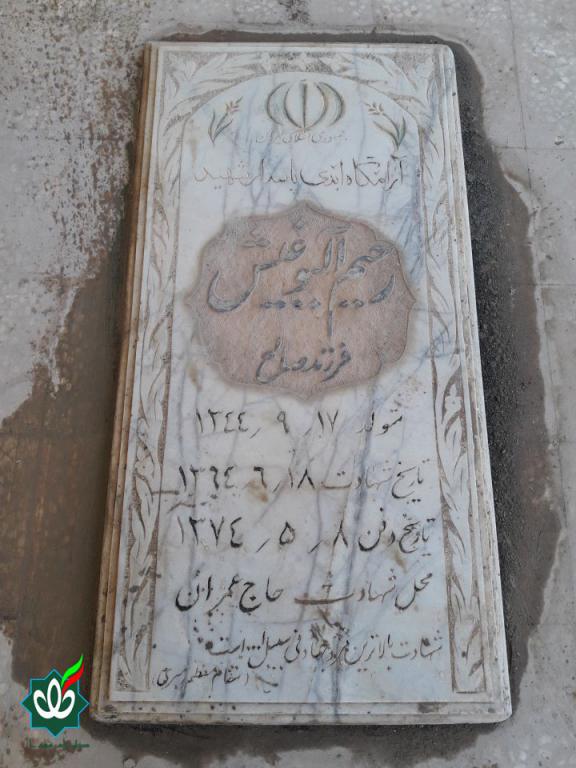 جمهوری اسلامی ایران
آرامگاه ابدی پاسدار شهید
رحیم آلبوغبیش
فرزند صالح
متولد ۱۷ / ۹ / ۱۳۴۴
تاریخ شهادت ۱۸ / ۶ / ۱۳۶۴
تاریخ دفن ۸ / ۵ / ۱۳۷۴
محل شهادت حاج عمران
شهادت بالاترین مزد جهاد فی سبیل الله است
مقام معظم رهبری